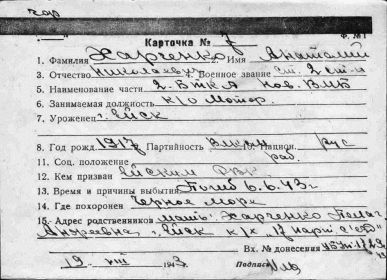 Ф. № 1
Карточка № 7
1. Фамилия Харченко Имя Анатолий
3. Отчество Николаевич 4. Военное звание ст. 2 ст-и
5. Наименование части 2. БТКА Нов. ВМБ
6. Занимаемая должность к/о мотор.
7. Уроженец г. Ейск
8. Год рожд. 1917 Партийность 10. Национ. рус
11. Соц. положение раб.
12. Кем призван Ейским РВК
13. Время и причины выбытия Погиб 6.6.43 г
14. Где похоронен Черное море
15. Адрес родственников мать: Харченко
Андреевна, г. Ейск к/х 17 парт. с‘‘езд‘‘
Вх. № донесения
19 VIII 1943
Подпись